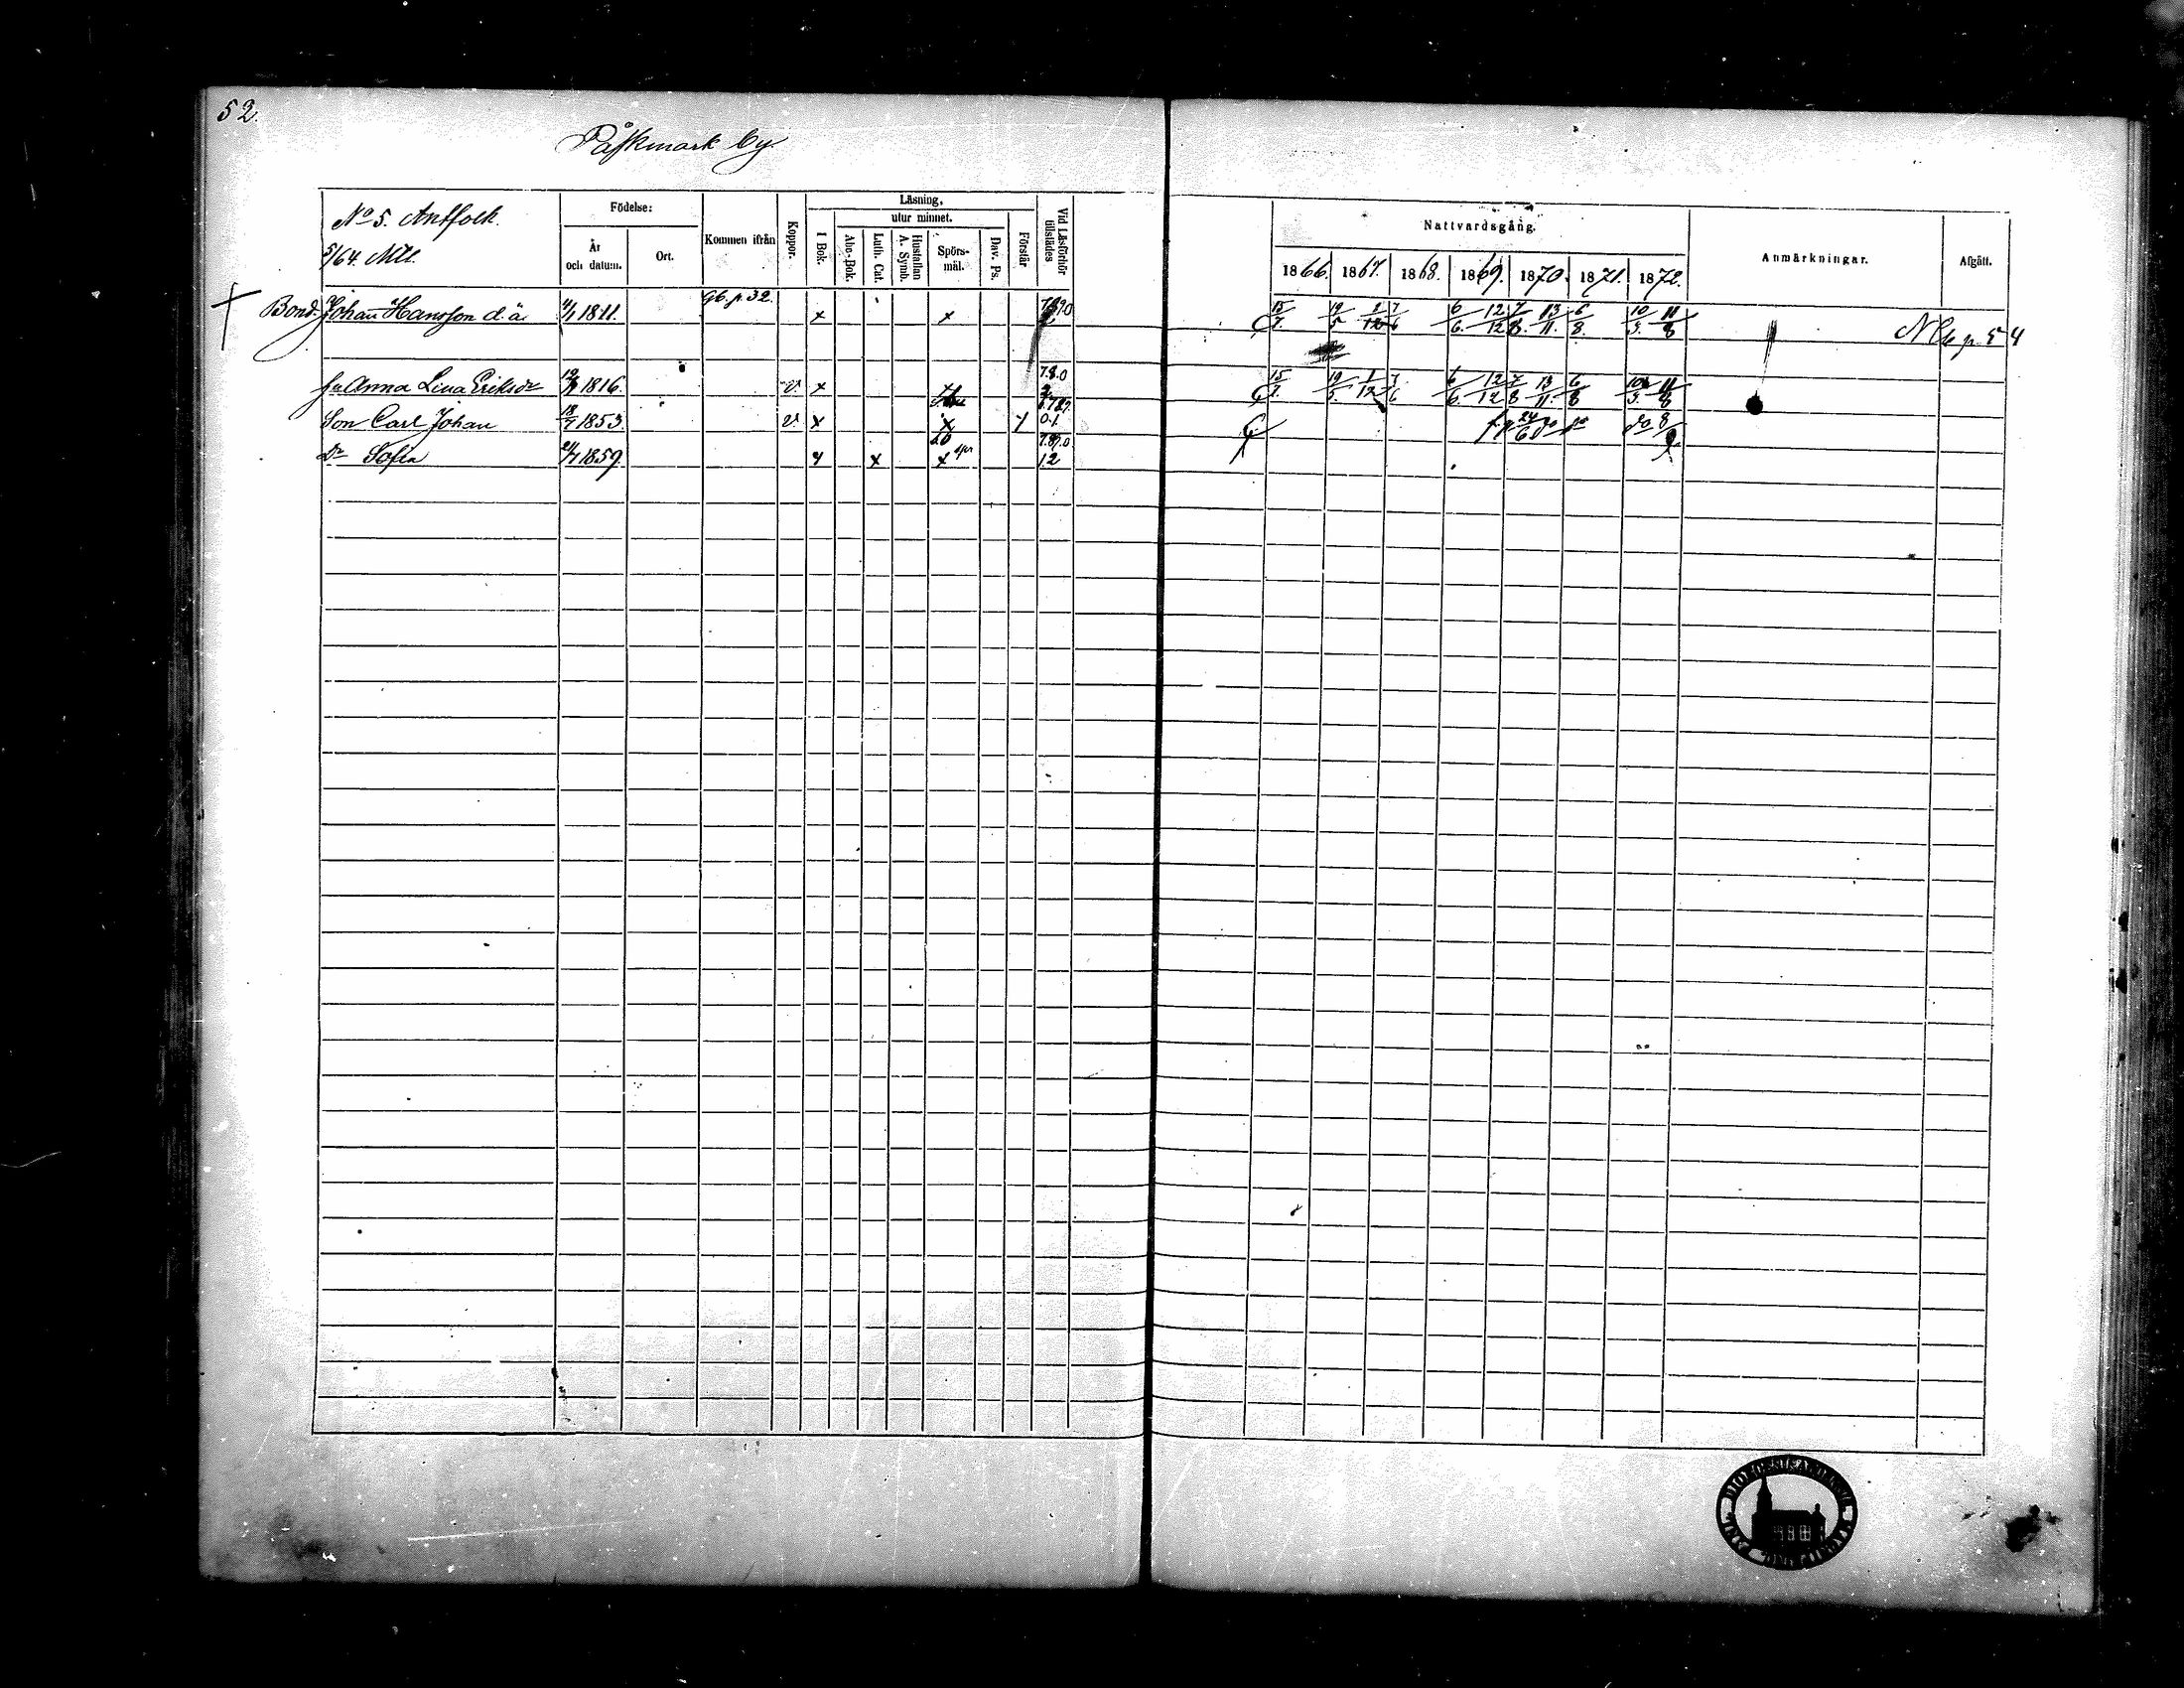 52.
Påskmark by
No 5. Antfolk.
5/64 Mtl.
Födelse:
År och datum.
Ort.
Kommen ifrån
Koppor.
Läsning,
I Bok.
utur minnet.
Abc-Bok.
Luth. Cat.
Hustaflan A. Symb.
Spörs-mål.
Dav. Ps.
Förstår
Vid Läsförhör tillstädes
Nattvardsgång.
1866. 1867. 1868. 1869. 1870. 1871. 1872.
Anmärkningar.
Afgått.
Bond. Johan Hansson d.ä. 1811. Gb. p 32. x x 15/7. 19/5 1/12 7/6 6/6. 12/12 7/8. 13/11. 6/8. 10/3. 11/8 N Cb p. 54
Anna Lina Eriksdr 1816. v x 15/7. 19/5. 1/12 7/6 6/6. 12/12 7/8 13/11. 6/8 10/3. 11/8
Son Carl Johan 18/7 1853. v x x 0.1. 24/6 do do do 8
Dr Sofia 1859. x x x 12